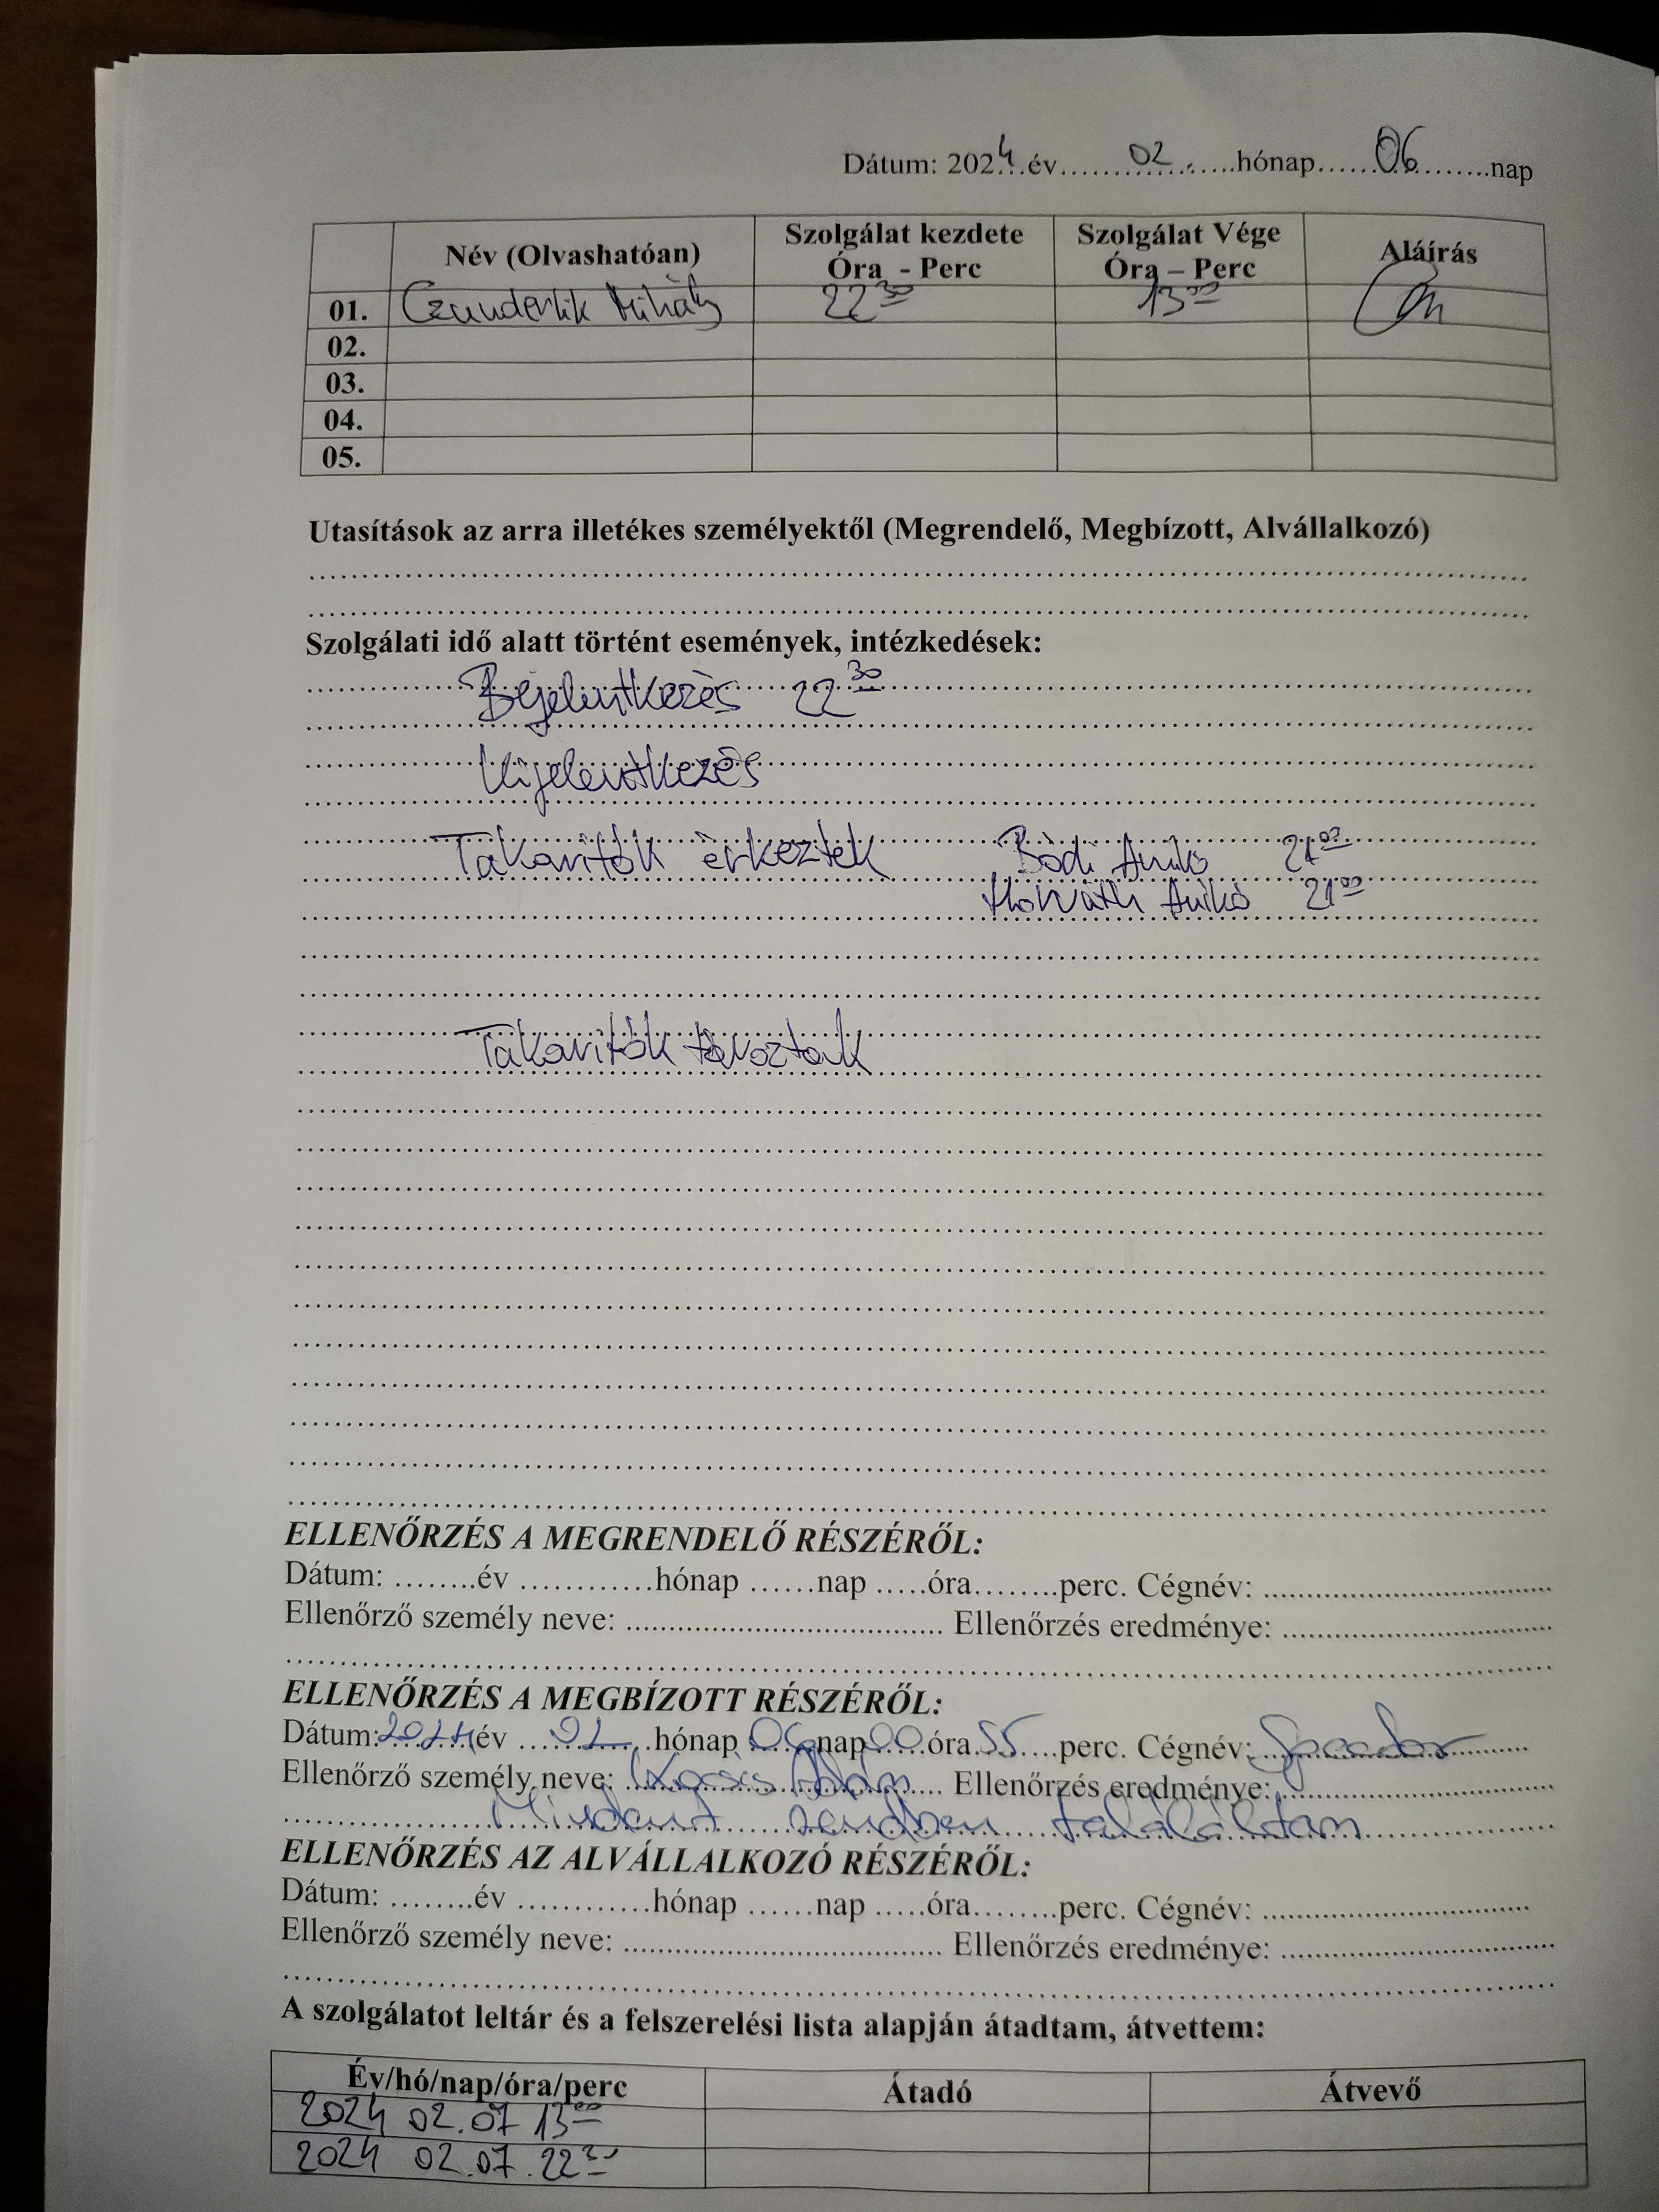 Dátum: 2024 év 02. hónap 06 nap
Név (Olvashatóan) Szolgálat kezdete Óra - Perc Szolgálat Vége Óra – Perc Aláírás
01. Czunderlik Mihály 22 30 13 00
02.
03.
04.
05.
Utasítások az arra illetékes személyektől (Megrendelő, Megbízott, Alvállalkozó)
Szolgálati idő alatt történt események, intézkedések:
Bejelentkezés 22 30
Kijelentkezés
Takarítók érkeztek Bódi Anikó 21 00
Horváth Anikó 21 00
Takarítók távoztak
ELLENŐRZÉS A MEGRENDELŐ RÉSZÉRŐL:
Dátum: ........év .............hónap ......nap .....óra........perc. Cégnév: ..............................
Ellenőrző személy neve: .................................. Ellenőrzés eredménye: ..............................
ELLENŐRZÉS A MEGBÍZOTT RÉSZÉRŐL:
Dátum: 2024 év 02 hónap 06 nap 00 óra 55 perc. Cégnév:
Ellenőrző személy neve: Kocsis Ádám Ellenőrzés eredménye:
Mindent rendben találáltam
ELLENŐRZÉS AZ ALVÁLLALKOZÓ RÉSZÉRŐL:
Dátum: ........év .............hónap ......nap .....óra........perc. Cégnév: ..............................
Ellenőrző személy neve: .................................. Ellenőrzés eredménye: ..............................
A szolgálatot leltár és a felszerelési lista alapján átadtam, átvettem:
Év/hó/nap/óra/perc Átadó Átvevő
2024 02.07 13 00
2024 02.07. 22 30